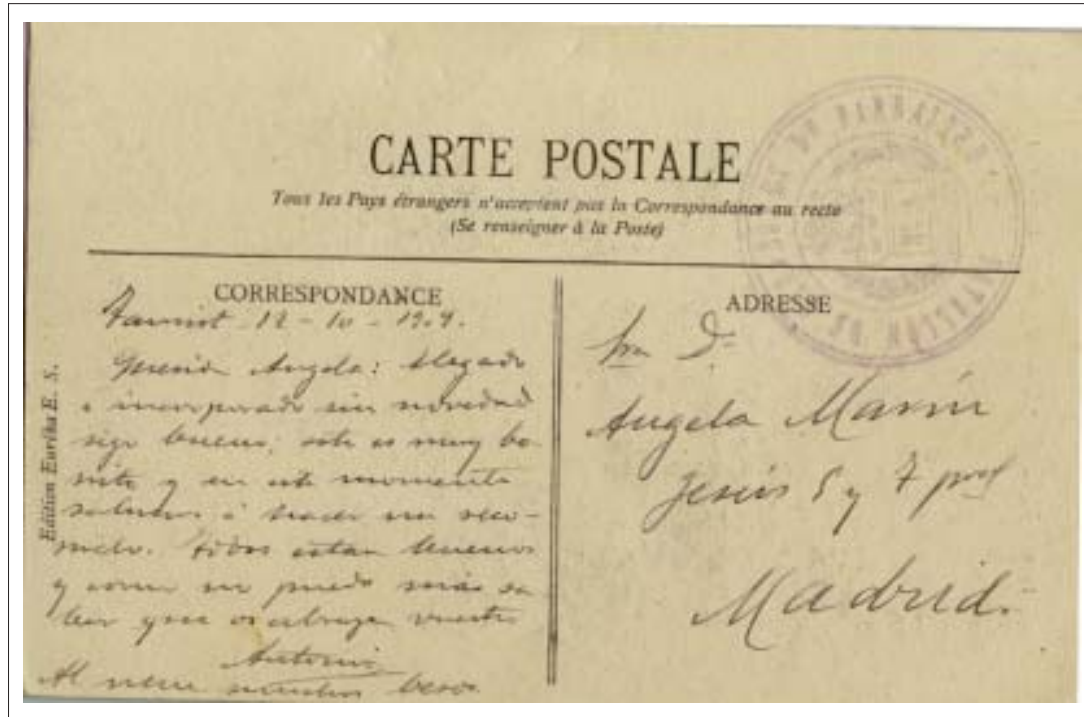 CARTE POSTALE
Tous les Pays étrangers n'acceptent pas la Correspondance au recto
(Se renseigner à la Poste)
CORRESPONDANCE
12 - 10 - 1909.
Querida Angela: llegado
e incorporado sin novedad
sigo bueno; este es muy bo-
nito y en este momento
salimos á hacer un reco-
todos estan buenos
y como no puedo más sa-
ber que os abraza vuestro
Antonio
Al nene muchos besos.
ADRESSE
Sra Dª
Angela Marín
Jesús 5 y 7 pral
Madrid.
Edition Euréka E. S.
BATALLON DE